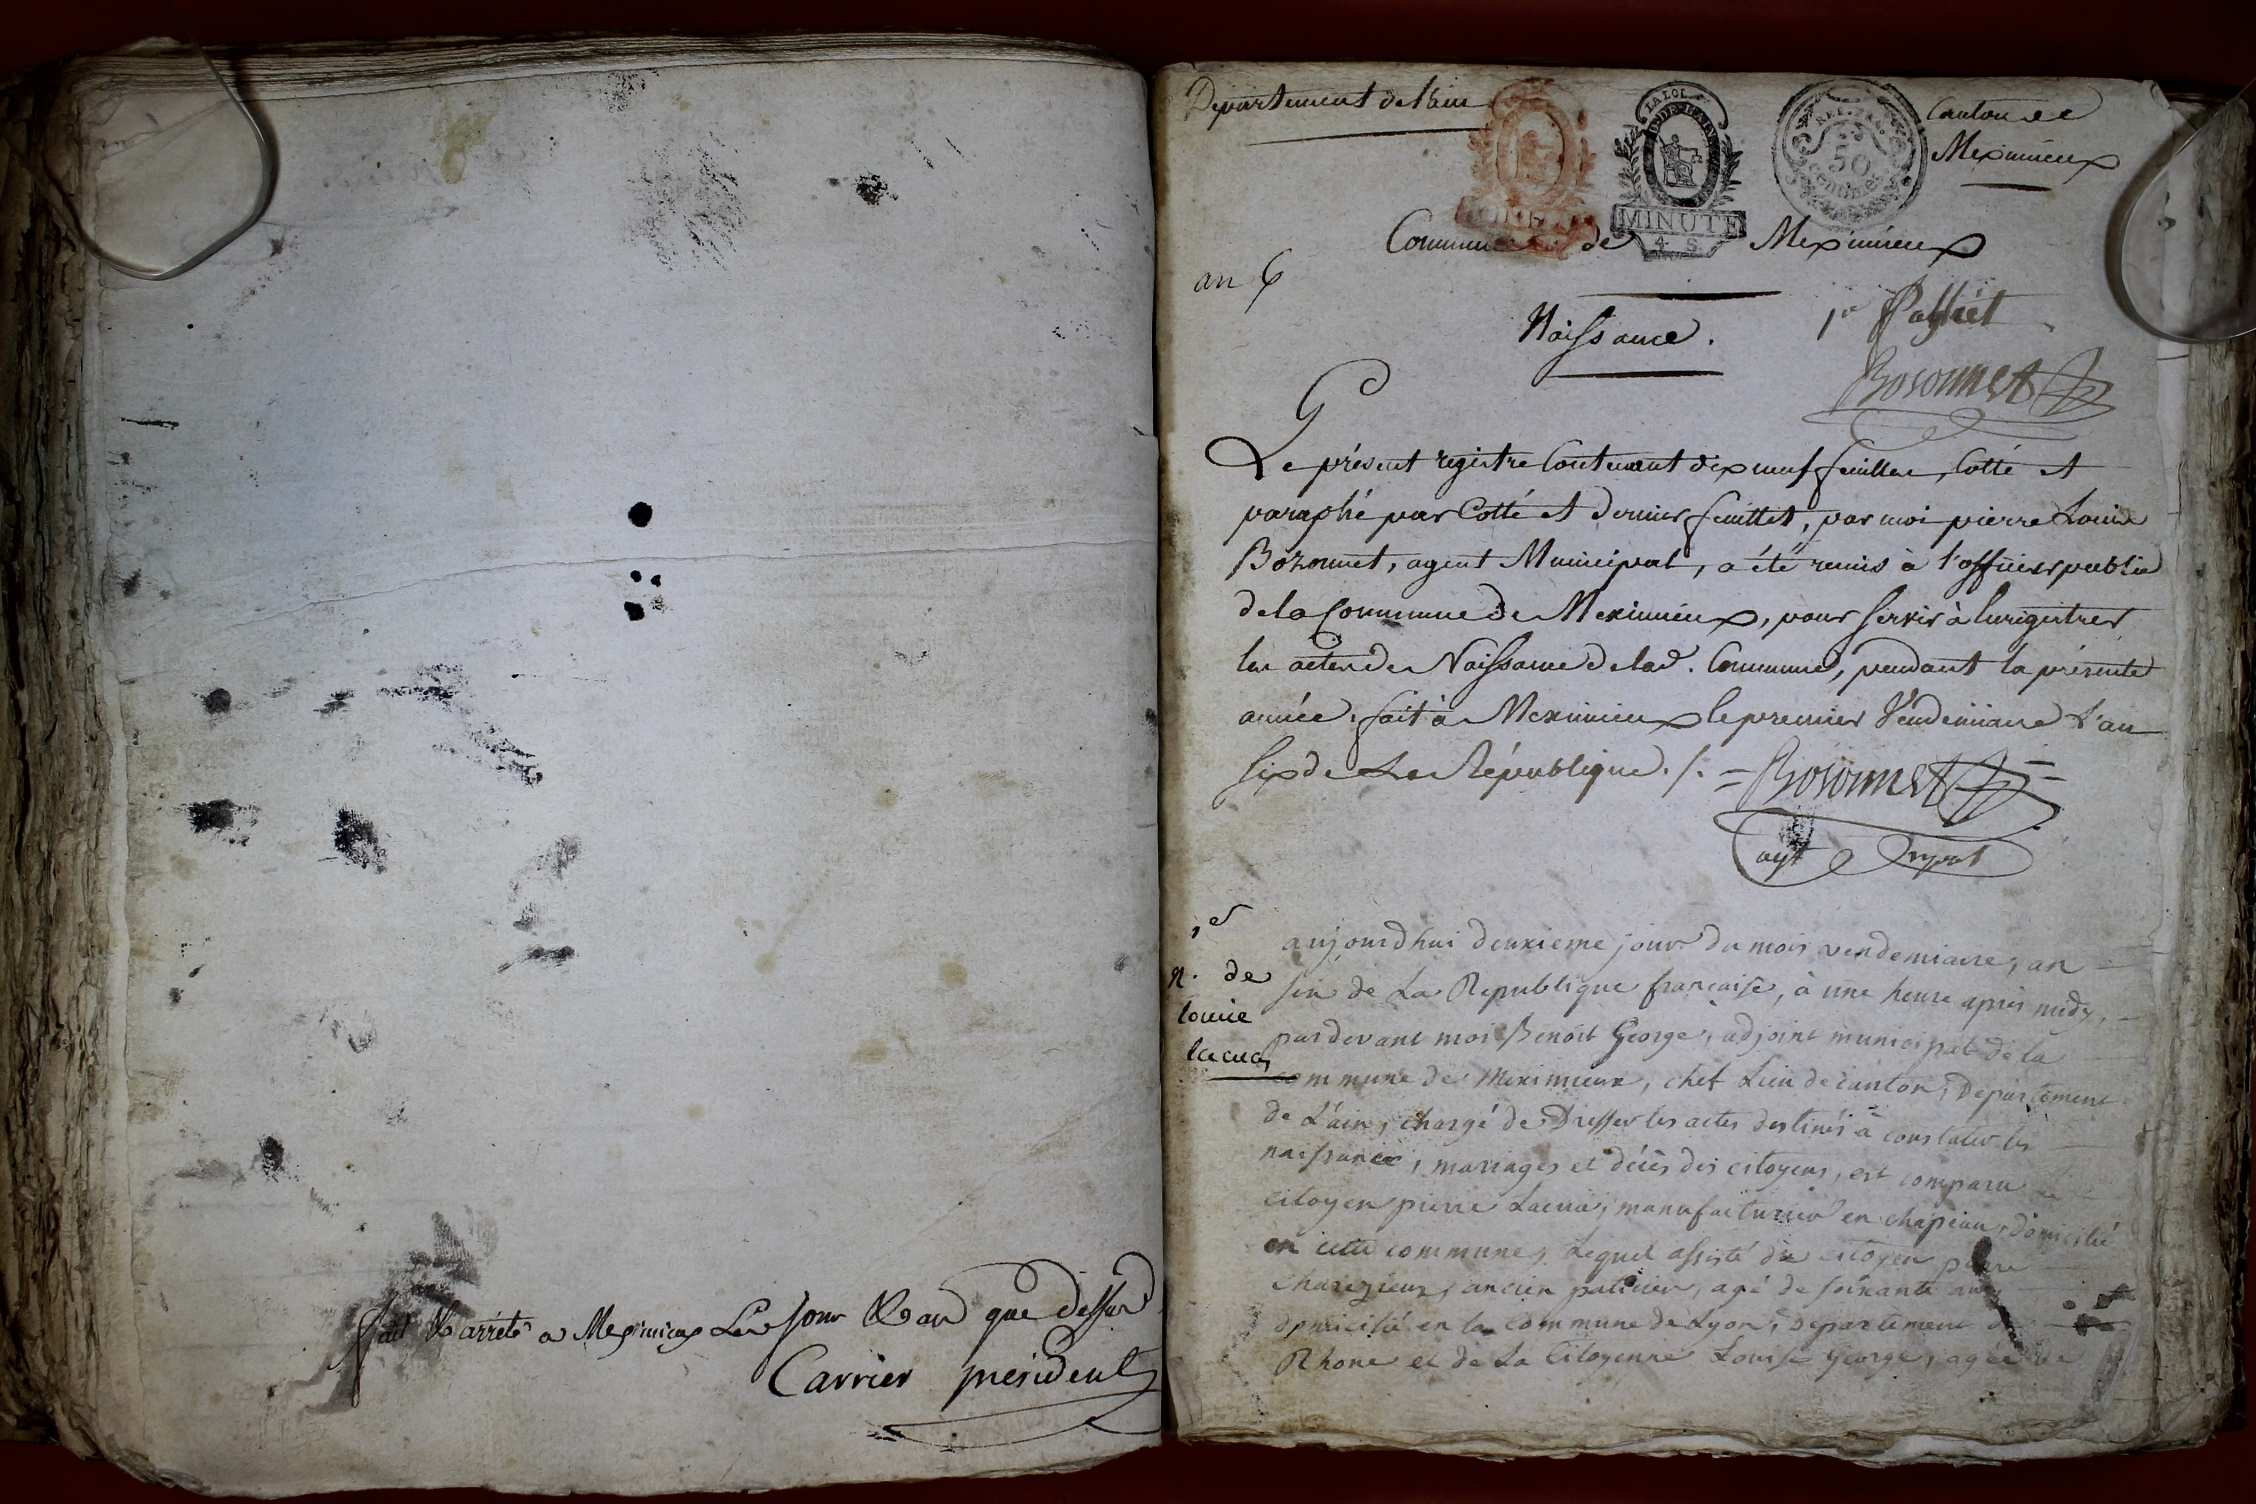 fait & arrêté a Meximieux Les jour & an que dessus
Carrier président
Departement de l'ain
Canton de
Meximieux
LA LOI
MINUTE
4. S.
50
centimes
Commune de Meximieux
an 6
Naissance.
Bosonnet
Le présent registre Contenant dix neuf feuillets, Cotté et
paraphé par Cotté et dernier feuillet, par moi pierre Louis
Bozonnet, agent Municipal, a été remis à l'officier public
de la Commune de Meximieux, pour servir à Enrigistrer
les actes de Naissance de lad. Commune, pendant la présente
année. fait à Meximieux le premier Vendemiaire L'an
six de La République ./. Bosonnet
agt
1er
N. de
louise
lacua
aujourdhui deuxieme jour du mois vendemiaire, an
sin de La Republique française, à une heure après midy,
pardevant moi Benoit George, adjoint municipal de la
commune de Meximieux, chef Lieu de canton, Departement
de L'ain, chargé de Dresser les actes destinés à constater les
naissances, mariages et décès des citoyens, est comparu
citoyen pierre Lacua, manufacturier en chapeau, domicilié
en cette commune, Lequel assisté du citoyen pierre
ancien patissier, agé de soixante ans
domicilié en la commune de Lyon, departement du
Rhone et de La Citoyenne Louise George, agée de